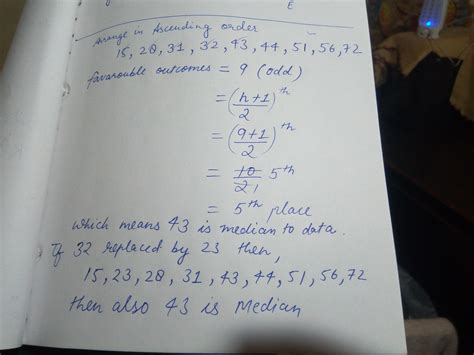 Arrange in Ascending order
15, 28, 31, 32, 43, 44, 51, 56, 72
favarouble outcomes = 9 (odd)
= (n+1/2)th
= (9+1/2)th
= 10/2 5th
= 5th place
which means 43 is median to data.
If 32 replaced by 23 then,
15, 23, 28, 31, 43, 44, 51, 56, 72
then also 43 is Median